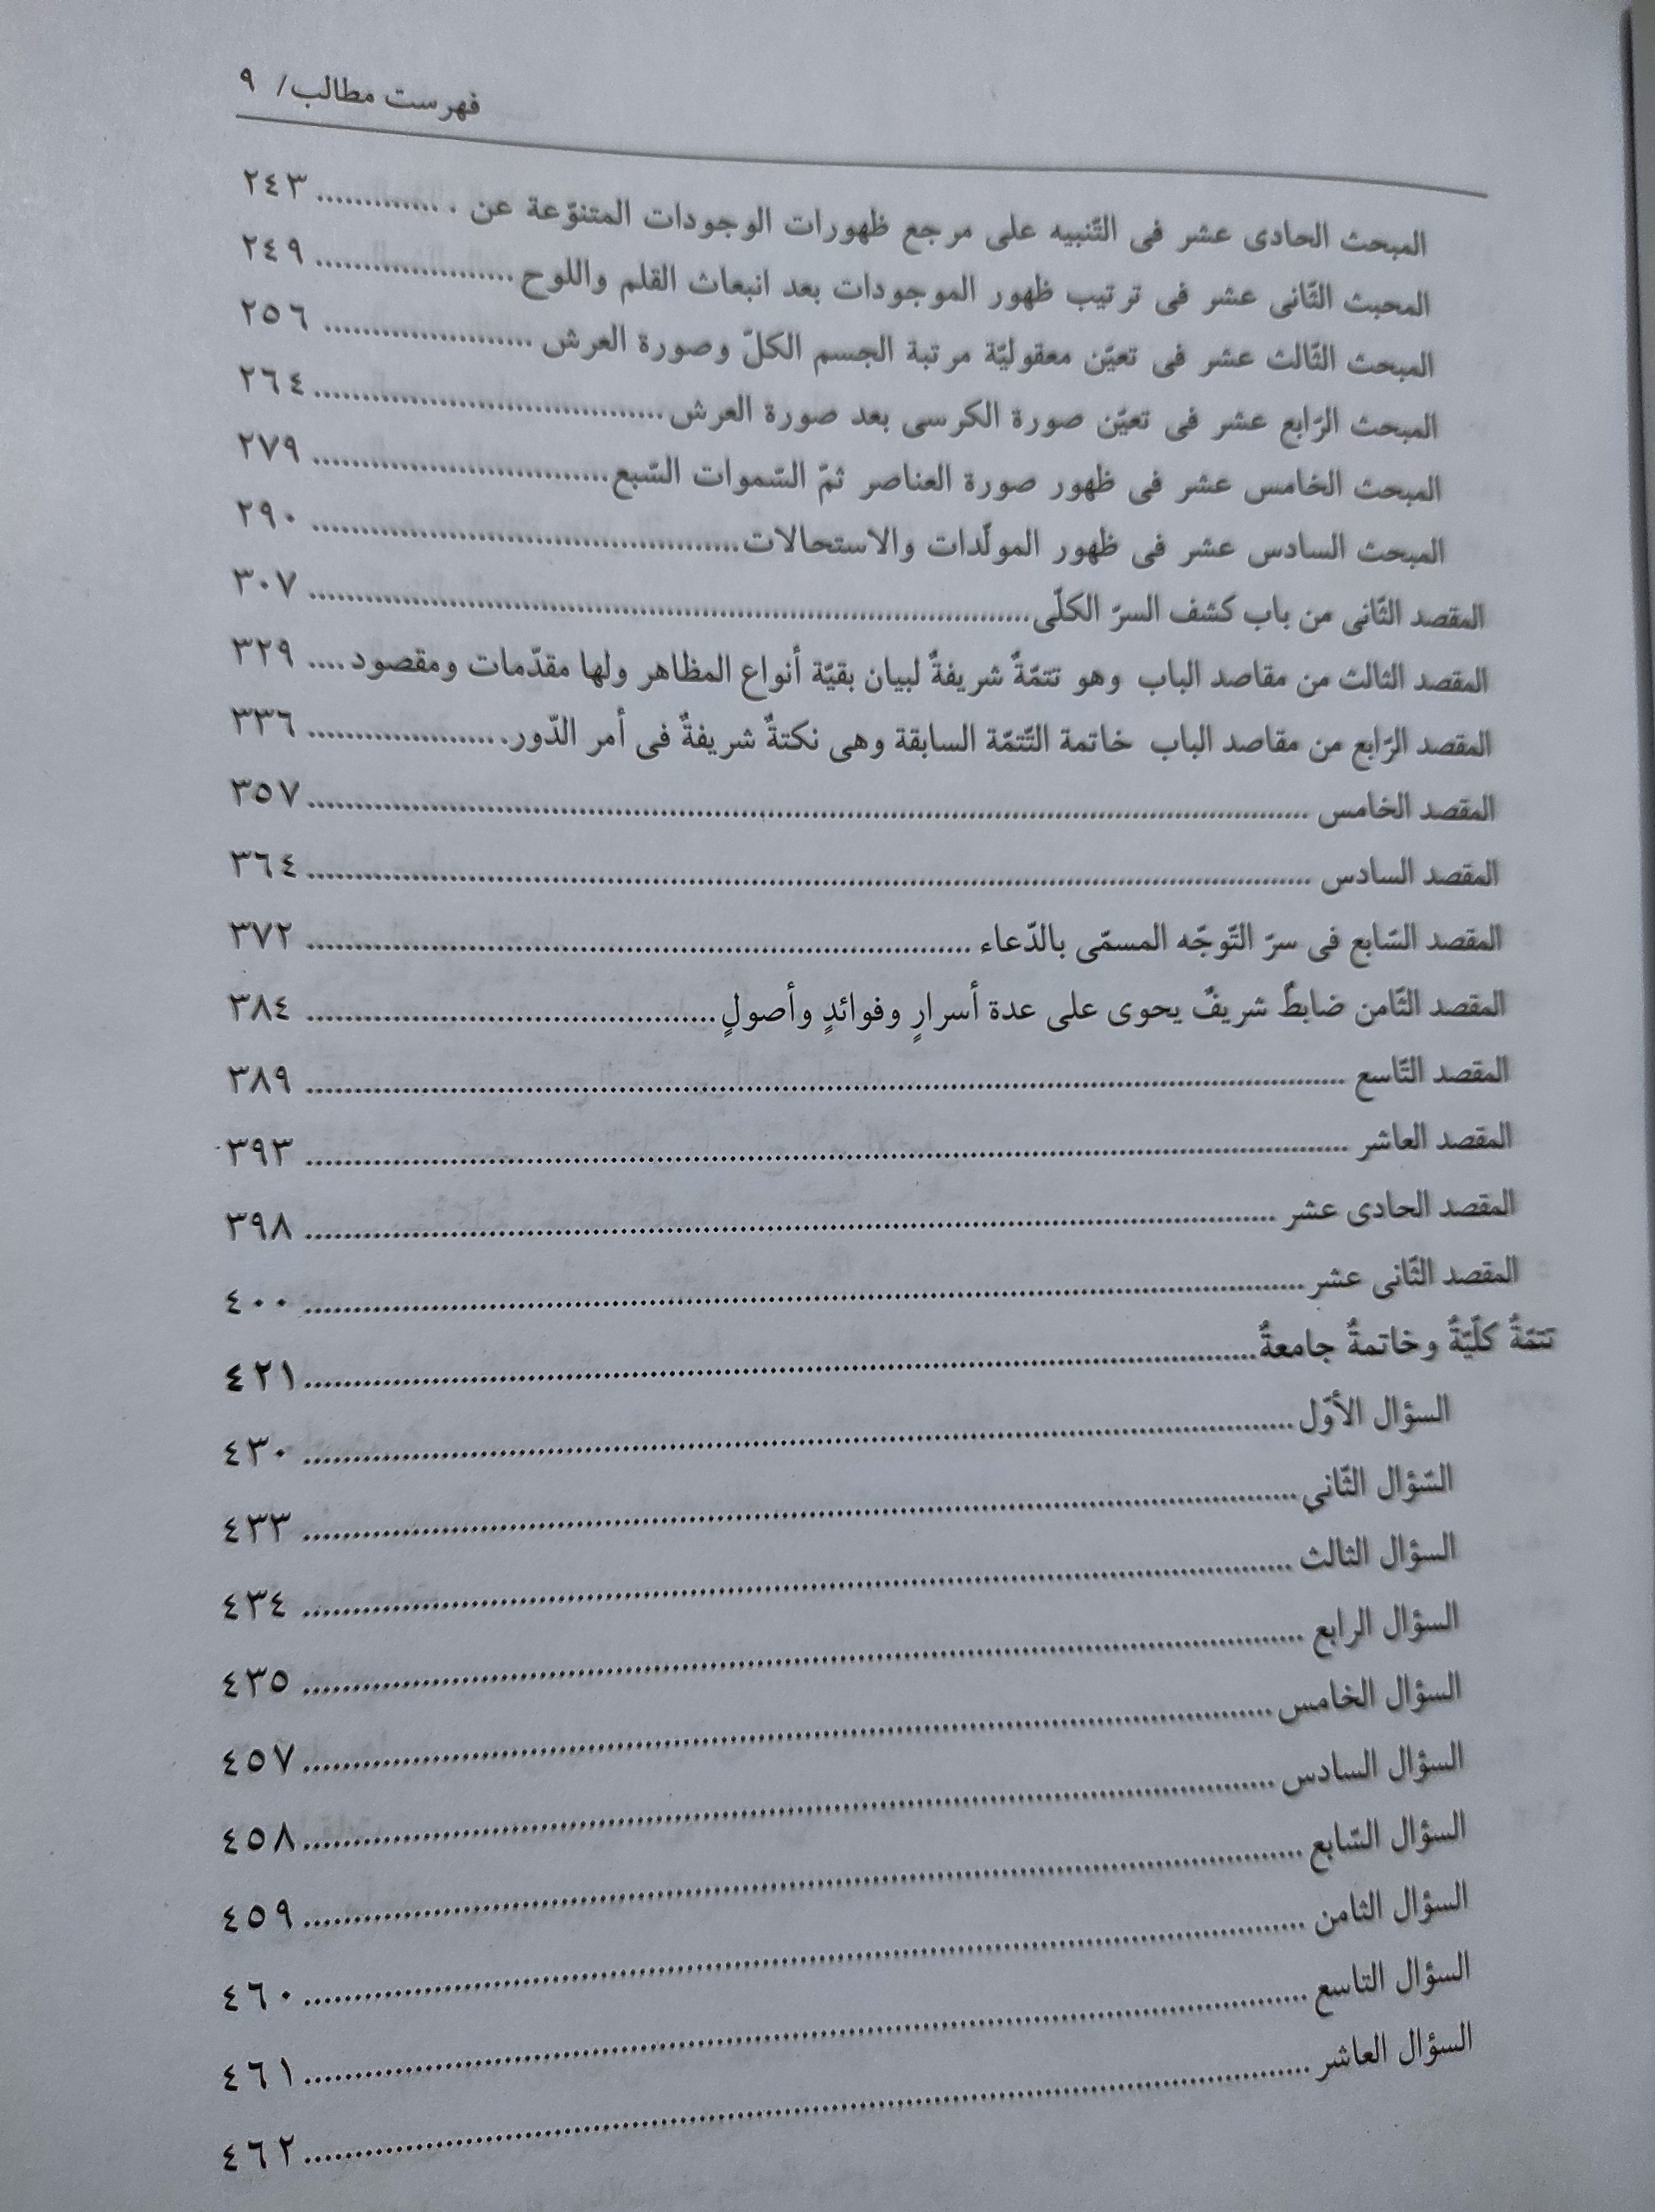 فهرست مطالب/ ٩
المبحث الحادى عشر فى التّنبيه على مرجع ظهورات الوجودات المتنوّعة عن . ............. ٢٤٣
المحبث الثّانى عشر فى ترتيب ظهور الموجودات بعد انبعاث القلم واللوح ..................... ٢٤٩
المبحث الثّالث عشر فى تعيّن معقوليّة مرتبة الجسم الكلّ وصورة العرش ..................... ٢٥٦
المبحث الرّابع عشر فى تعيّن صورة الكرسى بعد صورة العرش..................................... ٢٦٤
المبحث الخامس عشر فى ظهور صورة العناصر ثمّ السّموات السّبع............................... ٢٧٩
المبحث السادس عشر فى ظهور المولّدات والاستحالات............................................. ٢٩٠
المقصد الثّانى من باب كشف السرّ الكلّى............................................................................ ٣٠٧
المقصد الثالث من مقاصد الباب وهو تتمّةٌ شريفةٌ لبيان بقيّة أنواع المظاهر ولها مقدّمات ومقصود .... ٣٢٩
المقصد الرّابع من مقاصد الباب خاتمة التّتمّة السابقة وهى نكتةٌ شريفةٌ فى أمر الدّور. .................... ٣٣٦
المقصد الخامس ........................................................................................................... ٣٥٧
المقصد السادس ........................................................................................................... ٣٦٤
المقصد السّابع فى سرّ التّوجّه المسمّى بالدّعاء ...................................................................... ٣٧٢
المقصد الثّامن ضابطٌ شريفٌ يحوى على عدة أسرارٍ وفوائدٍ وأصولٍ........................................... ٣٨٤
المقصد التّاسع ............................................................................................................. ٣٨٩
المقصد العاشر ............................................................................................................. ٣٩٣
المقصد الحادى عشر ..................................................................................................... ٣٩٨
المقصد الثّانى عشر........................................................................................................ ٤٠٠
تتمّةٌ كلّيّةٌ وخاتمةٌ جامعةٌ.................................................................................................... ٤٢١
السؤال الأوّل........................................................................................................ ٤٣٠
السّؤال الثّاني........................................................................................................ ٤٣٣
السؤال الثالث ....................................................................................................... ٤٣٤
السؤال الرابع ........................................................................................................ ٤٣٥
السؤال الخامس..................................................................................................... ٤٥٧
السؤال السادس..................................................................................................... ٤٥٨
السؤال السّابع ....................................................................................................... ٤٥٩
السؤال الثامن ....................................................................................................... ٤٦٠
السؤال التاسع ....................................................................................................... ٤٦١
السؤال العاشر ....................................................................................................... ٤٦٢